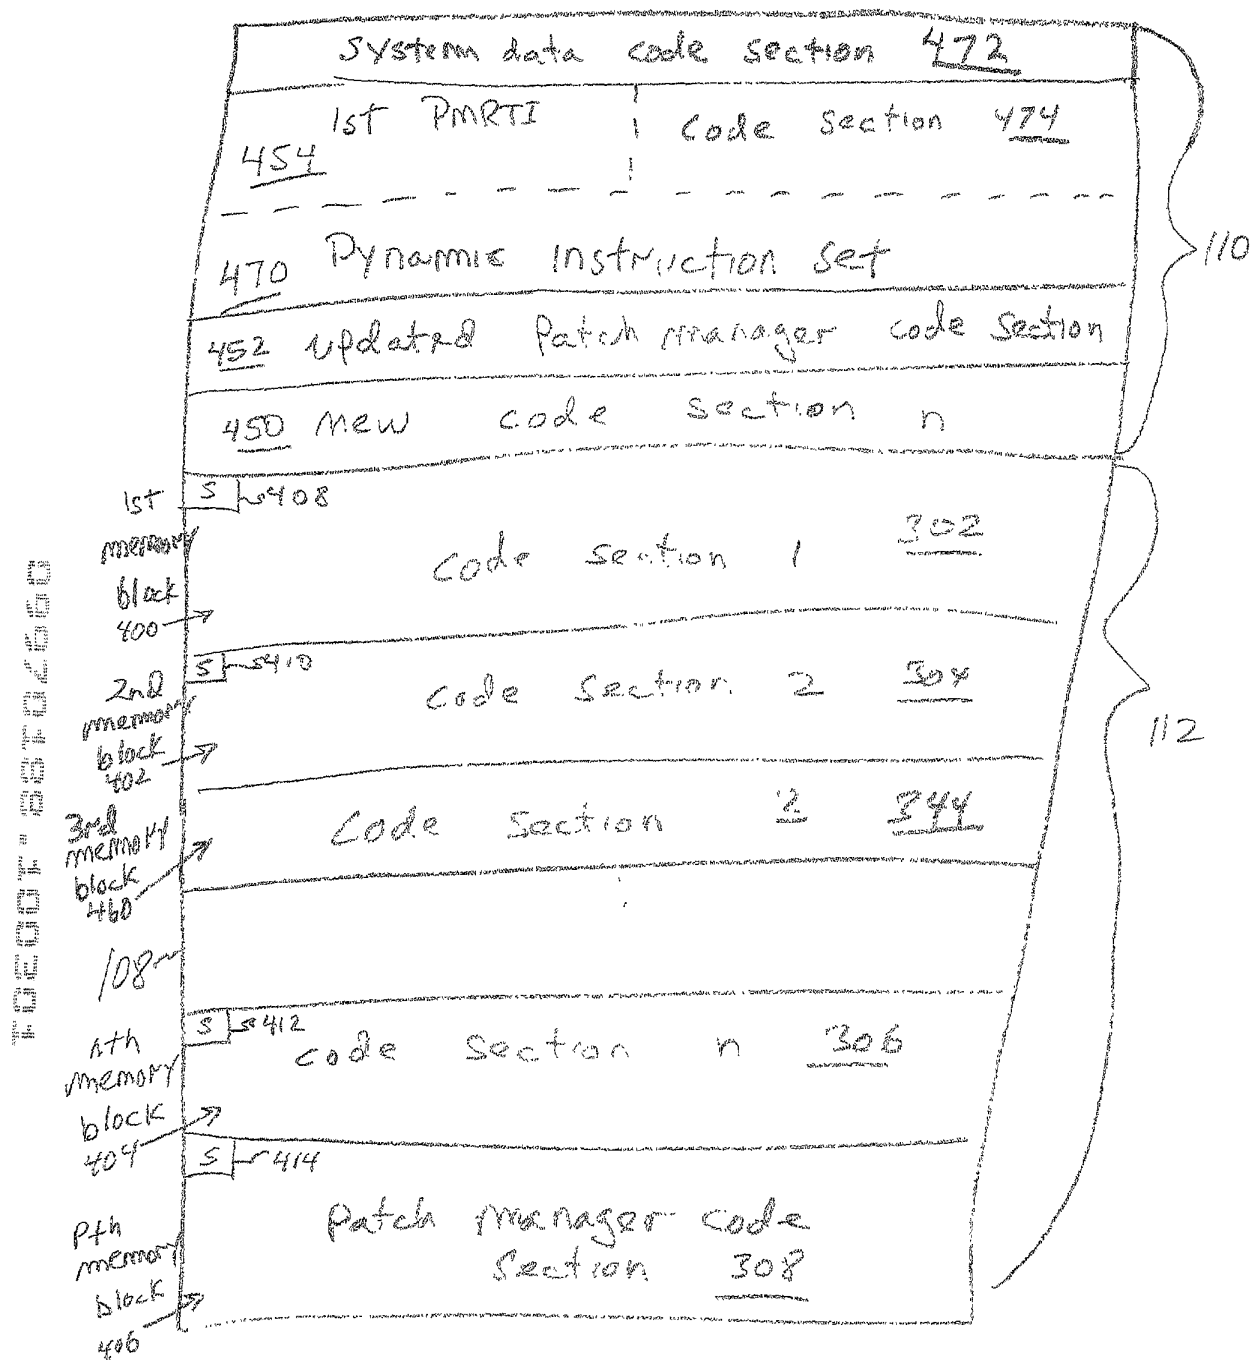 System data code section 472
1st PMRTI code section 474
454
470 Dynamic instruction set
110
452 updated Patch manager code section
450 new code section n
1st memory block 400
S 408
code section 1 302
2nd memory block 402
S 410
code section 2 304
112
3rd memory block 460
code section 2 344
108
nth memory block 404
S 412
code section n 306
Pth memory block 406
S 414
Patch manager code
section 308